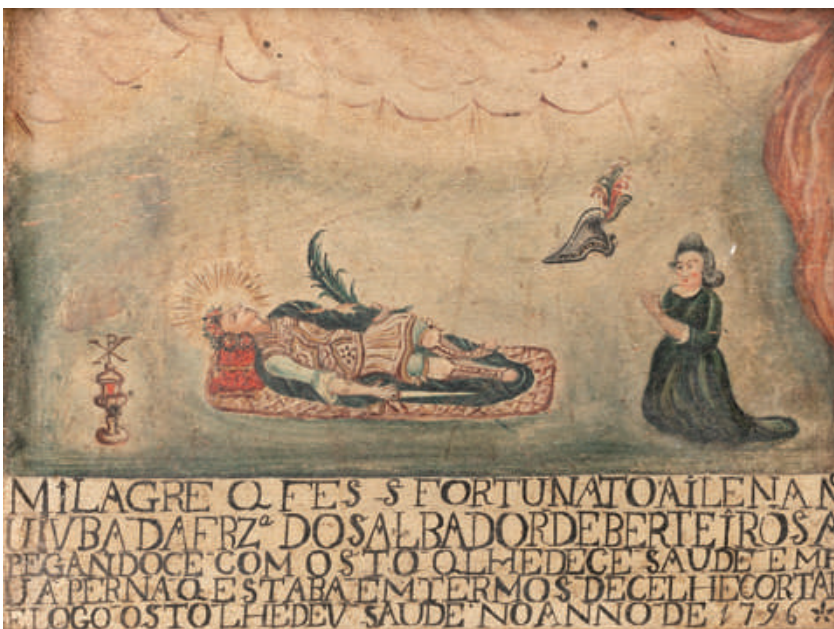 MiLAGRE Q FES S FORTUNATO A ILENA N
UIVBA DA FRZª DO SALBADOR DE BERTEIROS A
PEGANDOCE COM O STO Q LHE DECE SAUDE E ME
UA PERNA Q ESTABA EM TERMOS DE CE LHE CORTAR
E LOGO O STO LHE DEV SAUDE NO ANNO DE 1796